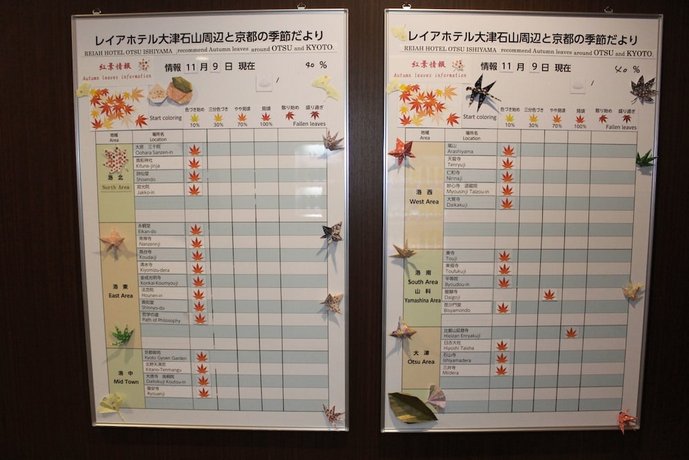 レイアホテル大津石山周辺と京都の季節だより
REIAH HOTEL OTSU ISHIYAMA recommend Autumn leaves around OTSU and KYOTO.
紅葉情報
Autumn leaves information
情報 11 月 9 日 現在
Start coloring
色づき始め 三分色づき やや見頃 見頃 散り始め 盛り過ぎ
10% 30% 70% 100% Fallen leaves
地域 Area
場所名 Location
洛北
North Area
大原 三千院
Oohara Sanzen-in
貴船神社
Kifune-jinja
詩仙堂
Shisendo
Jakko-in
洛東
East Area
永観堂
Eikan-do
南禅寺
Nanzenji
高台寺
Koudaiji
清水寺
Kiyomizu-dera
金戒光明寺
Konkai-Koumyouji
法然院
Hounen-in
真如堂
Shinnyo-do
哲学の道
Path of Philosophy
洛中
Mid Town
京都御苑
Kyoto Gyoen Garden
北野天満宮
Kitano-Tenmangu
大徳寺 高桐院
Daitokuji Koutou-in
龍安寺
Ryouanji
レイアホテル大津石山周辺と京都の季節だより
REIAH HOTEL OTSU ISHIYAMA recommend Autumn leaves around OTSU and KYOTO.
紅葉情報
Autumn leaves information
情報 11 月 9 日 現在
Start coloring
色づき始め 三分色づき やや見頃 見頃 散り始め 盛り過ぎ
10% 30% 70% 100% Fallen leaves
地域 Area
場所名 Location
洛西
West Area
嵐山
Arashiyama
天龍寺
Tenryuji
仁和寺
Ninnaji
妙心寺 退蔵院
Myousinji Taizou-in
大覚寺
Daikakuji
洛南
South Area
山科
Yamashina Area
東寺
Touji
東福寺
Toufukuji
平等院
Byoudou-in
醍醐寺
Daigoji
毘沙門堂
Bisyamondo
大津
Otsu Area
比叡山延暦寺
Hieizan Enryakuji
日吉大社
Hiyoshi Taisha
石山寺
Ishiyamadera
三井寺
Miidera